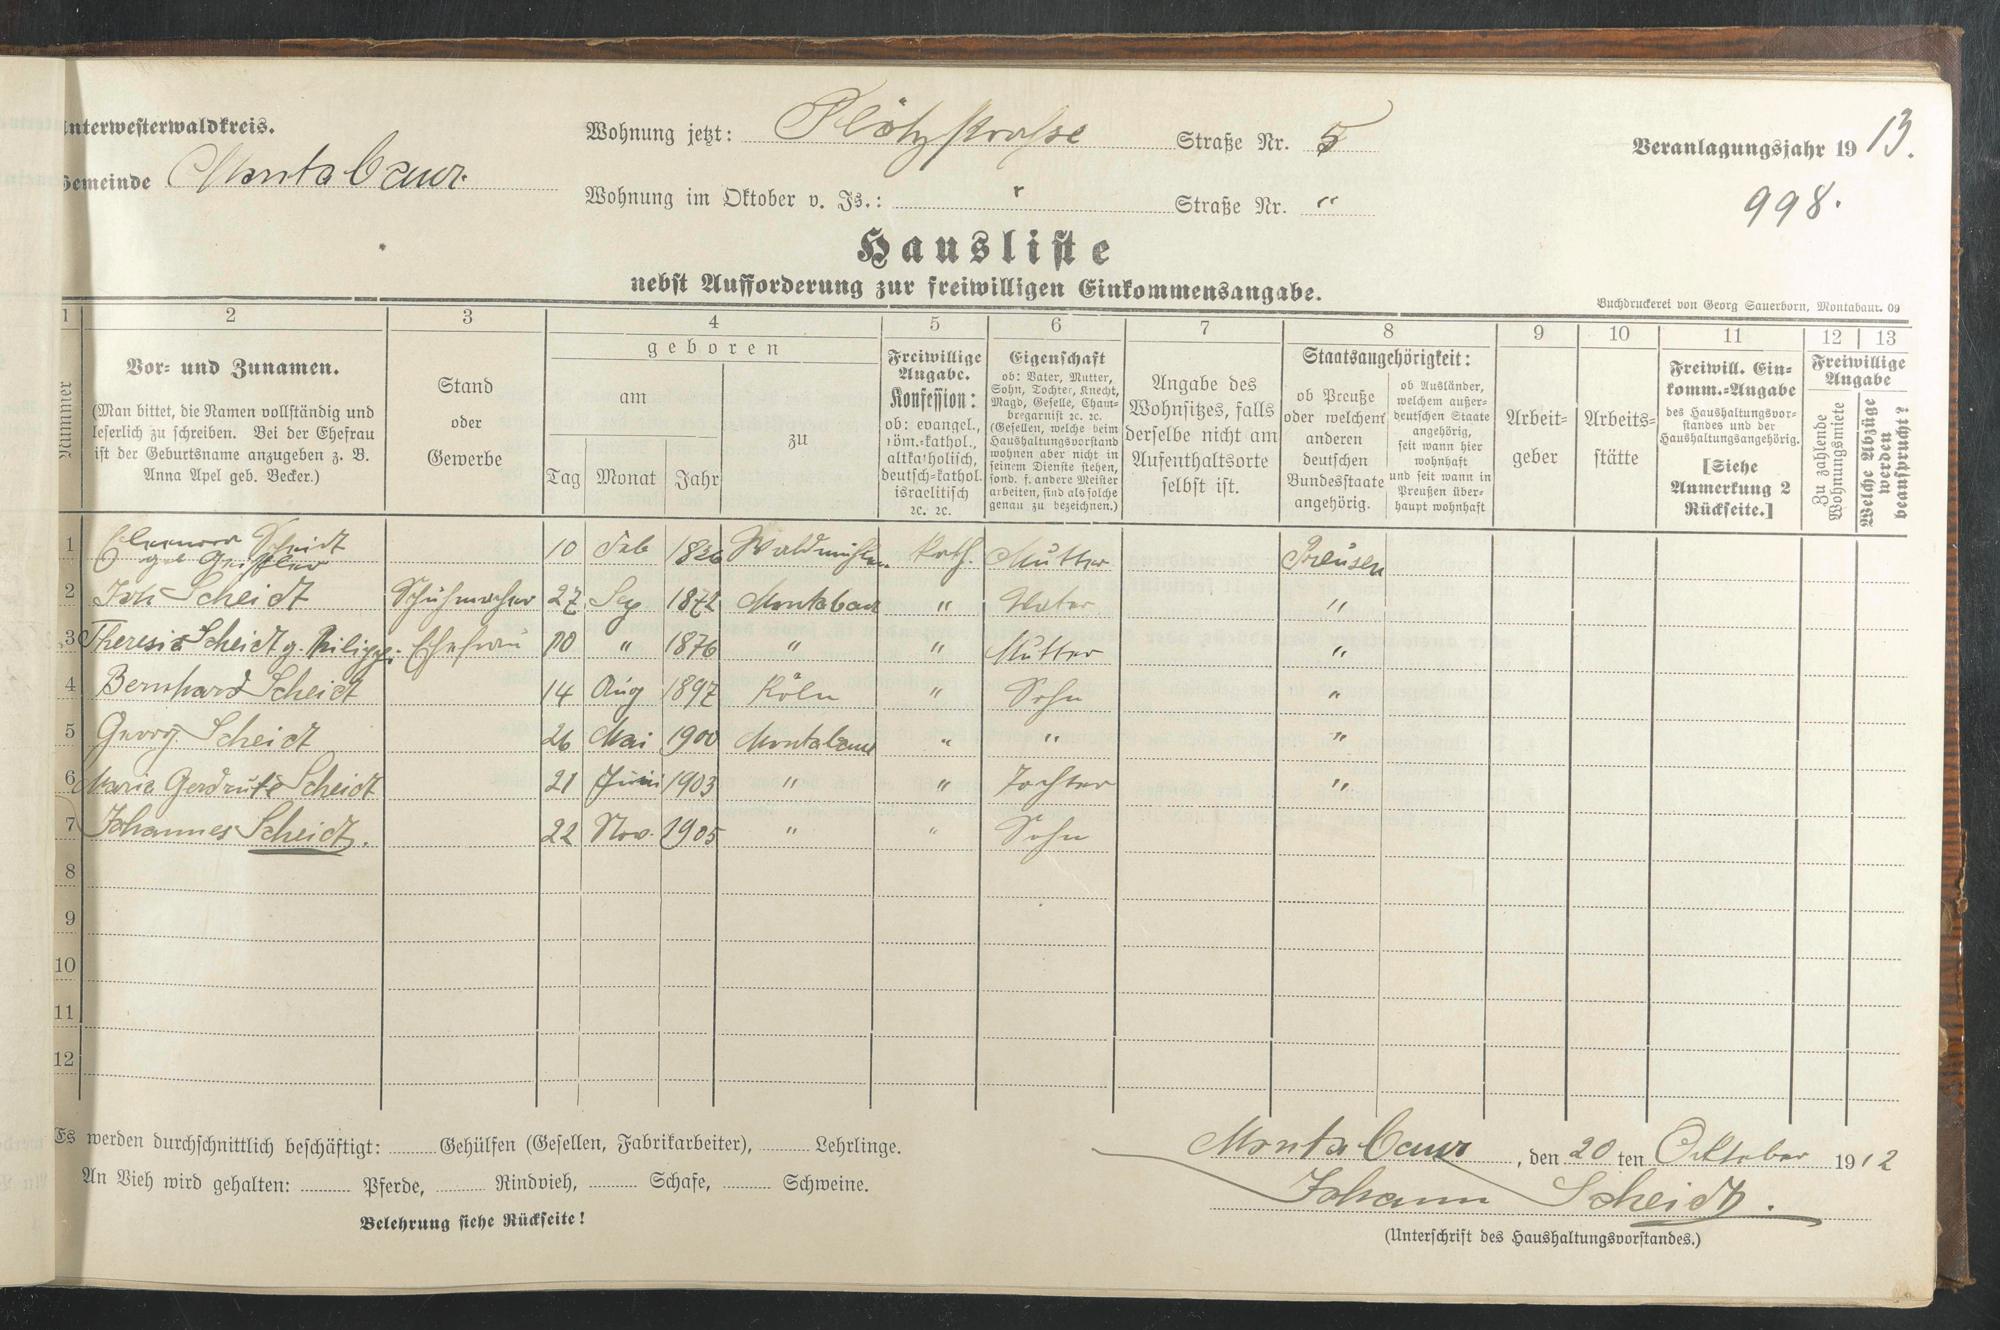 Unterwesterwaldkreis.
Gemeinde Montabaur.
Wohnung jetzt: Plötzstraße Straße Nr. 5
Wohnung im Oktober v. Js.: " Straße Nr. "
Veranlagungsjahr 1913.
998.
Hausliste
nebst Aufforderung zur freiwilligen Einkommensangabe.
Buchdruckerei von Georg Sauerborn, Montabaur. 09
1 2 3 4 5 6 7 8 9 10 11 12 13
Nummer
Vor- und Zunamen.
(Man bittet, die Namen vollständig und
leserlich zu schreiben. Bei der Ehefrau
ist der Geburtsname anzugeben z. B.
Anna Apel geb. Becker.)
Stand
oder
Gewerbe
geboren
am
Tag Monat Jahr
zu
Freiwillige
Angabe.
Konfession:
ob: evangel.,
röm.-kathol.,
altkatholisch,
deutsch-kathol.
israelitisch
2c. 2c.
Eigenschaft
ob: Vater, Mutter,
Sohn, Tochter, Knecht,
Magd, Geselle, Cham-
bregarnist 2c. 2c.
(Gesellen, welche beim
Haushaltungsvorstand
wohnen aber nicht in
seinem Dienste stehen,
sond. f. andere Meister
arbeiten, sind als solche
genau zu bezeichnen.)
Angabe des
Wohnsitzes, falls
derselbe nicht am
Aufenthaltsorte
selbst ist.
Staatsangehörigkeit:
ob Preuße
oder welchem
anderen
deutschen
Bundesstaate
angehörig.
ob Ausländer,
welchem außer-
deutschen Staate
angehörig,
seit wann hier
wohnhaft
und seit wann in
Preußen über-
haupt wohnhaft
Arbeit-
geber
Arbeits-
stätte
Freiwill. Ein-
komm.-Angabe
des Haushaltungsvor-
standes und der
Haushaltungsangehörig.
[Siehe
Anmerkung 2
Rückseite.]
Freiwillige
Angabe
Zu zahlende
Wohnungsmiete
Welche Abzüge
werden
beansprucht?
1 Eleonora Scheidt 10 Feb 1836 Waldmühlen kath. Mutter Preusen
geb Geißler
2 Joh Scheidt Schuhmacher 27 Sep 1872 Montabaur " Vater "
3 Theresia Scheidt g. Philippi Ehefrau 10 " 1876 " " Mutter "
4 Bernhard Scheidt 14 Aug 1897 Köln " Sohn "
5 Georg Scheidt 26 Mai 1900 Montabaur " " "
6 Maria Gerdrute Scheidt 21 Juni 1903 " " Tochter "
7 Johannes Scheidt. 22 Nov. 1905 " " Sohn
8
9
10
11
12
Es werden durchschnittlich beschäftigt: Gehülfen (Gesellen, Fabrikarbeiter), Lehrlinge.
An Vieh wird gehalten: Pferde, Rindvieh, Schafe, Schweine.
Belehrung siehe Rückseite!
Montabaur, den 20 ten Oktober 1912
Johann Scheidt.
(Unterschrift des Haushaltungsvorstandes.)